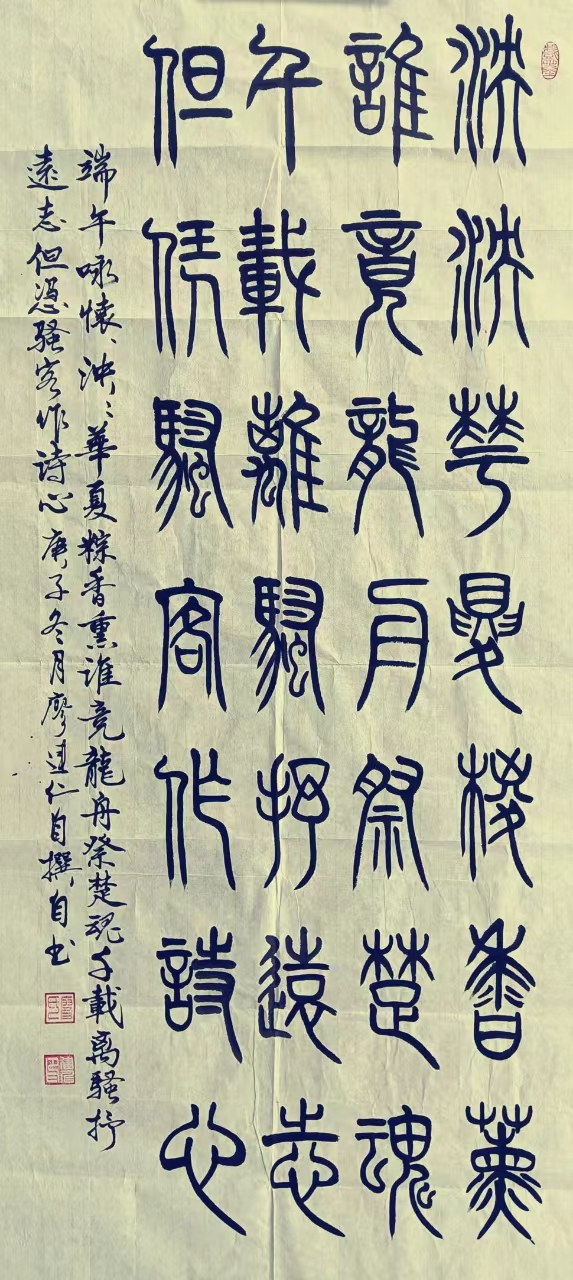 泱泱華夏糉香薰
誰竟龍舟祭楚魂
千載離騷抒遠志
但凭騷客作詩心
端午咏懷泱々華夏粽香熏誰竞龍舟祭楚魂千載离騷抒
遠志但凭騷客作詩心庚子冬月廖建仁自撰自书